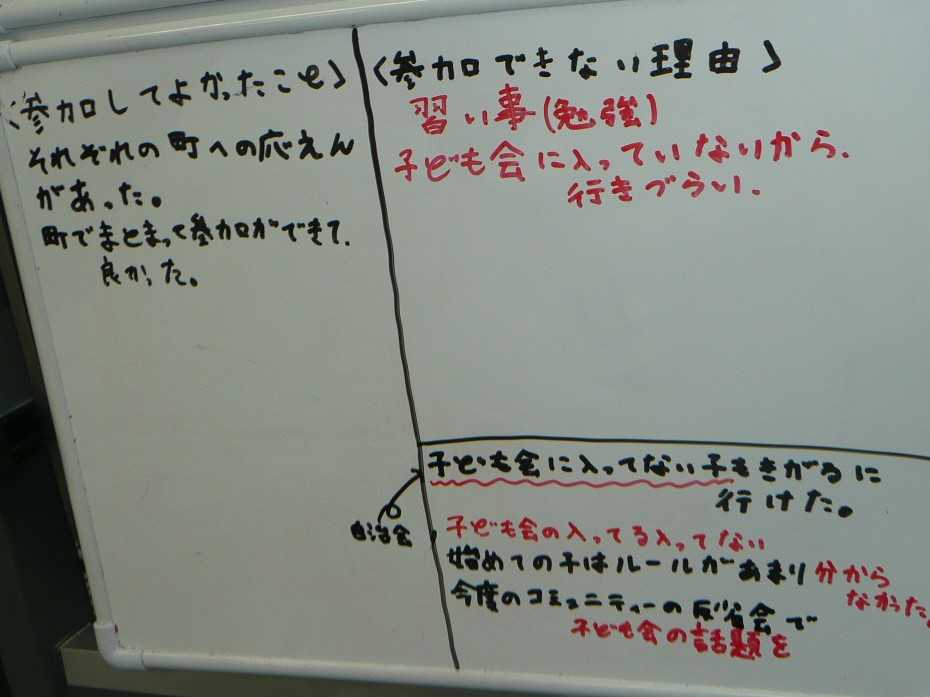 〈参加してよかったこと〉
それぞれの町への応えん
があった。
町でまとまって参加ができて、
良かった。
〈参加できない理由〉
習い事(勉強)
子ども会に入っていないから、
行きづらい。
子ども会に入ってない子もきがるに
行けた。
自治会
子ども会の入ってる入ってない
始めての子はルールがあまり分から
なかった。
今度のコミュニティーの反省会で
子ども会の話題を